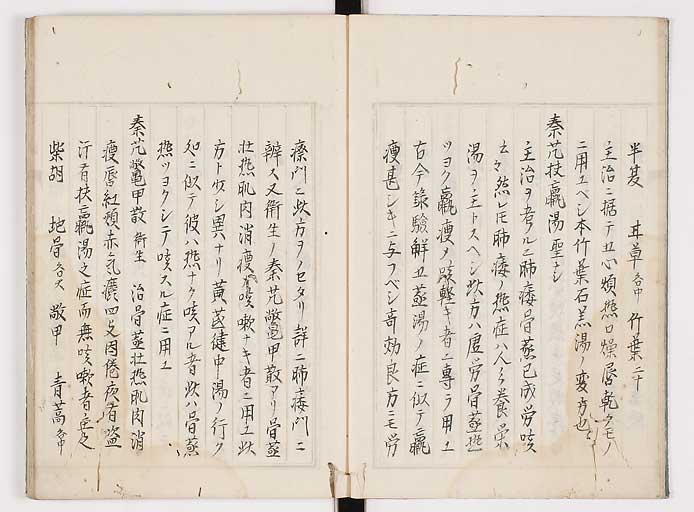 半夏 甘草各中 竹葉二十
主治ニ据テ五心煩熱口燥唇乾クモノ
ニ用ユベシ本竹葉石羔湯ノ変方也
秦艽扶羸湯 聖主
主治ヲ考ルニ肺痿骨蒸已成労咳
云々然レモ肺痿ノ熱症ハ人参養栄
湯ヲ主トスヘシ此方ハ虚労骨蒸熱
ツヨク羸痩メ咳軽キ者ニ専ラ用ユ
古今録驗解五蒸湯ノ症ニ似テ羸
痩甚シキニ与フベシ奇効良方ニモ労
瘵門ニ此方ヲノセタリ詳ニ肺痿門ニ
辨ス又衛生ノ秦艽鼈甲散アリ骨蒸
壮熱肌肉消痩咳嗽ナキ者ニ用ユ此
方ト少シ異ナリ黄芪建中湯ノ行ク
処ニ似テ彼ハ熱ナク咳アル者此ハ骨蒸
熱ツヨクシテ咳スル症ニ用ユ
秦艽鼈甲散 衛生 治骨蒸壮熱肌肉消
痩唇紅頬赤気麤四支困倦夜有盗
汗有扶羸湯之症而無咳嗽者主之
柴胡 地骨各大 鼈甲 青蒿各中